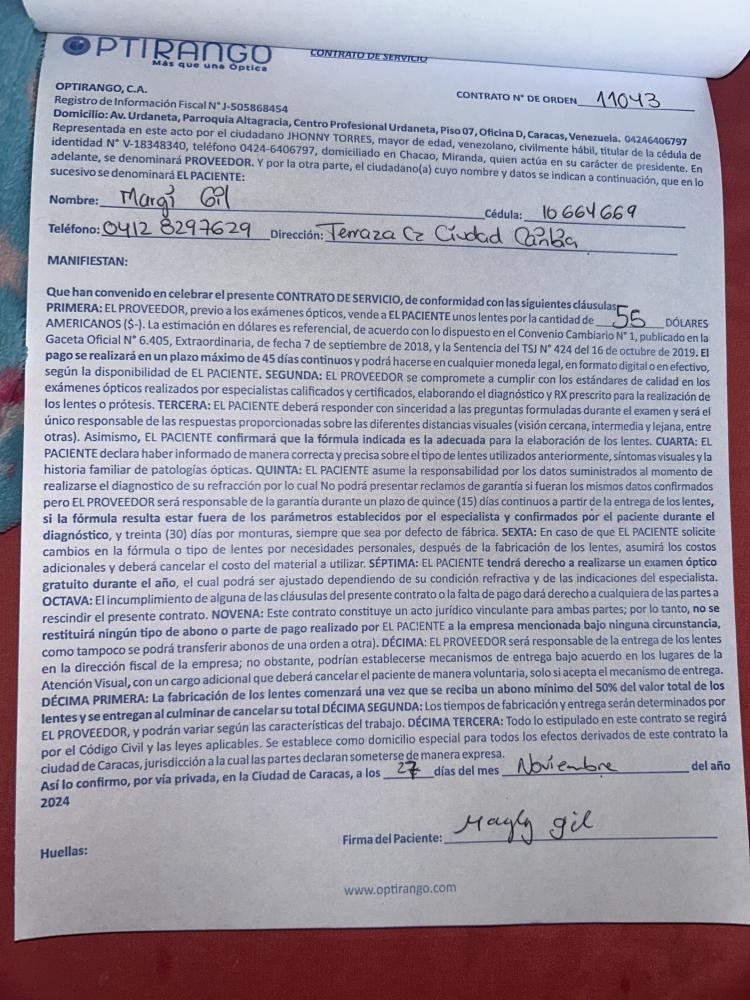 OPTIRANGO
Más que una Óptica
CONTRATO DE SERVICIO
OPTIRANGO, C.A.
CONTRATO N° DE ORDEN 11043
Registro de Información Fiscal N° J-505868454
Domicilio: Av. Urdaneta, Parroquia Altagracia, Centro Profesional Urdaneta, Piso 07, Oficina D, Caracas, Venezuela. 04246406797
Representada en este acto por el ciudadano JHONNY TORRES, mayor de edad, venezolano, civilmente hábil, titular de la cédula de
identidad N° V-18348340, teléfono 0424-6406797, domiciliado en Chacao, Miranda, quien actúa en su carácter de presidente. En
adelante, se denominará PROVEEDOR. Y por la otra parte, el ciudadano(a) cuyo nombre y datos se indican a continuación, que en lo
sucesivo se denominará EL PACIENTE:
Nombre: Margi Gil Cédula: 10 664 669
Teléfono: 0412 8297629 Dirección: Terraza Cz Ciudad
MANIFIESTAN:
Que han convenido en celebrar el presente CONTRATO DE SERVICIO, de conformidad con las siguientes cláusulas
PRIMERA: EL PROVEEDOR, previo a los exámenes ópticos, vende a EL PACIENTE unos lentes por la cantidad de 55 DÓLARES
AMERICANOS ($-). La estimación en dólares es referencial, de acuerdo con lo dispuesto en el Convenio Cambiario N° 1, publicado en la
Gaceta Oficial N° 6.405, Extraordinaria, de fecha 7 de septiembre de 2018, y la Sentencia del TSJ N° 424 del 16 de octubre de 2019. El
pago se realizará en un plazo máximo de 45 días continuos y podrá hacerse en cualquier moneda legal, en formato digital o en efectivo,
según la disponibilidad de EL PACIENTE. SEGUNDA: EL PROVEEDOR se compromete a cumplir con los estándares de calidad en los
exámenes ópticos realizados por especialistas calificados y certificados, elaborando el diagnóstico y RX prescrito para la realización de
los lentes o prótesis. TERCERA: EL PACIENTE deberá responder con sinceridad a las preguntas formuladas durante el examen y será el
único responsable de las respuestas proporcionadas sobre las diferentes distancias visuales (visión cercana, intermedia y lejana, entre
otras). Asimismo, EL PACIENTE confirmará que la fórmula indicada es la adecuada para la elaboración de los lentes. CUARTA: EL
PACIENTE declara haber informado de manera correcta y precisa sobre el tipo de lentes utilizados anteriormente, síntomas visuales y la
historia familiar de patologías ópticas. QUINTA: EL PACIENTE asume la responsabilidad por los datos suministrados al momento de
realizarse el diagnostico de su refracción por lo cual No podrá presentar reclamos de garantía si fueran los mismos datos confirmados
pero EL PROVEEDOR será responsable de la garantía durante un plazo de quince (15) días continuos a partir de la entrega de los lentes,
si la fórmula resulta estar fuera de los parámetros establecidos por el especialista y confirmados por el paciente durante el
diagnóstico, y treinta (30) días por monturas, siempre que sea por defecto de fábrica. SEXTA: En caso de que EL PACIENTE solicite
cambios en la fórmula o tipo de lentes por necesidades personales, después de la fabricación de los lentes, asumirá los costos
adicionales y deberá cancelar el costo del material a utilizar. SÉPTIMA: EL PACIENTE tendrá derecho a realizarse un examen óptico
gratuito durante el año, el cual podrá ser ajustado dependiendo de su condición refractiva y de las indicaciones del especialista.
OCTAVA: El incumplimiento de alguna de las cláusulas del presente contrato o la falta de pago dará derecho a cualquiera de las partes a
rescindir el presente contrato. NOVENA: Este contrato constituye un acto jurídico vinculante para ambas partes; por lo tanto, no se
restituirá ningún tipo de abono o parte de pago realizado por EL PACIENTE a la empresa mencionada bajo ninguna circunstancia,
como tampoco se podrá transferir abonos de una orden a otra). DÉCIMA: EL PROVEEDOR será responsable de la entrega de los lentes
en la dirección fiscal de la empresa; no obstante, podrían establecerse mecanismos de entrega bajo acuerdo en los lugares de la
Atención Visual, con un cargo adicional que deberá cancelar el paciente de manera voluntaria, solo si acepta el mecanismo de entrega.
DÉCIMA PRIMERA: La fabricación de los lentes comenzará una vez que se reciba un abono mínimo del 50% del valor total de los
lentes y se entregan al culminar de cancelar su total DÉCIMA SEGUNDA: Los tiempos de fabricación y entrega serán determinados por
EL PROVEEDOR, y podrán variar según las características del trabajo. DÉCIMA TERCERA: Todo lo estipulado en este contrato se regirá
por el Código Civil y las leyes aplicables. Se establece como domicilio especial para todos los efectos derivados de este contrato la
ciudad de Caracas, jurisdicción a la cual las partes declaran someterse de manera expresa.
Así lo confirmo, por vía privada, en la Ciudad de Caracas, a los 27 días del mes Noviembre del año
2024
Firma del Paciente: Mayly gil
Huellas:
www.optirango.com